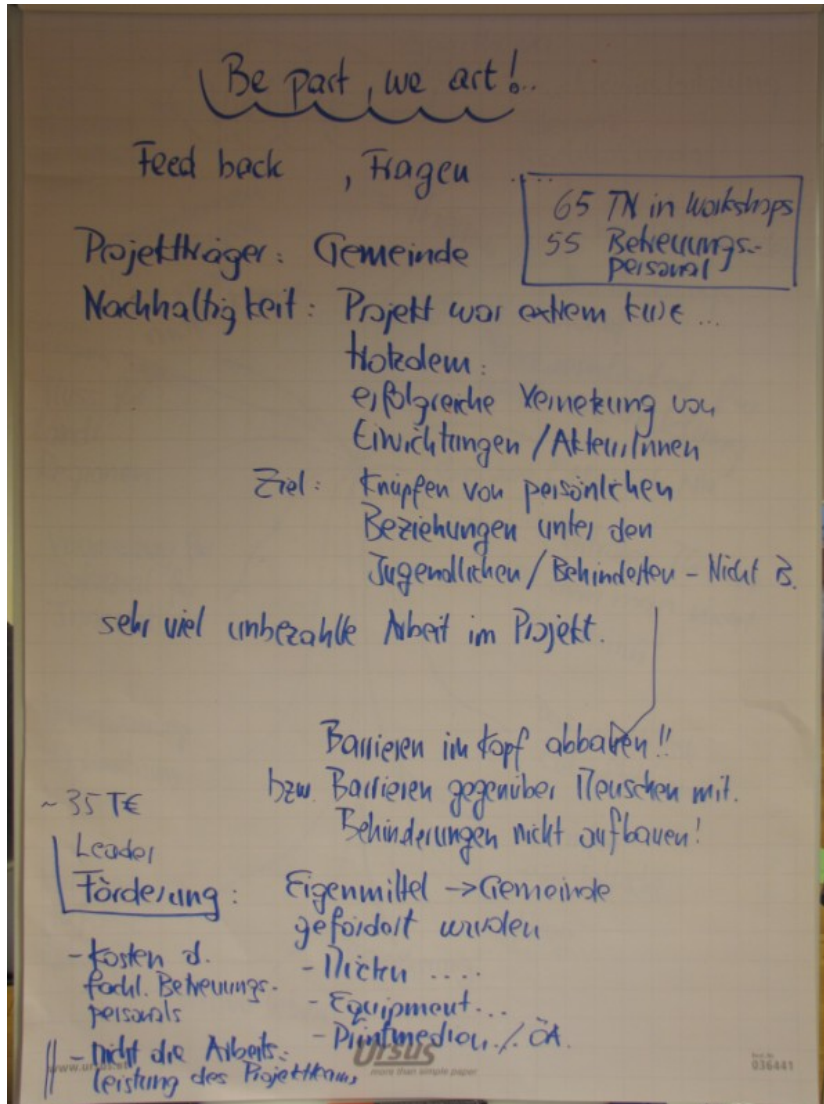 Be part, we act!..
Feed back , Fragen .....
65 TN in Workshops
55 Betreuungs-
personal
Projektträger: Gemeinde
Nachhaltigkeit: Projekt war extrem kurz ...
trotzdem:
erfolgreiche Vernetzung von
Einrichtungen / AkteurInnen
Ziel: Knüpfen von persönlichen
Beziehungen unter den
Jugendlichen / Behinderten - Nicht B.
sehr viel unbezahlte Arbeit im Projekt.
Barrieren im Kopf abbauen!!
bzw. Barrieren gegenüber Menschen mit.
Behinderungen nicht aufbauen!
~35 T€
Leader
Förderung: Eigenmittel -> Gemeinde
gefördert wurden
- Mieten ....
- Equipment...
- Printmedien / ÖA.
- Kosten d.
fachl. Betreuungs-
personals
- nicht die Arbeits-
leistung des Projektteams
Ursus
more than simple paper
036441